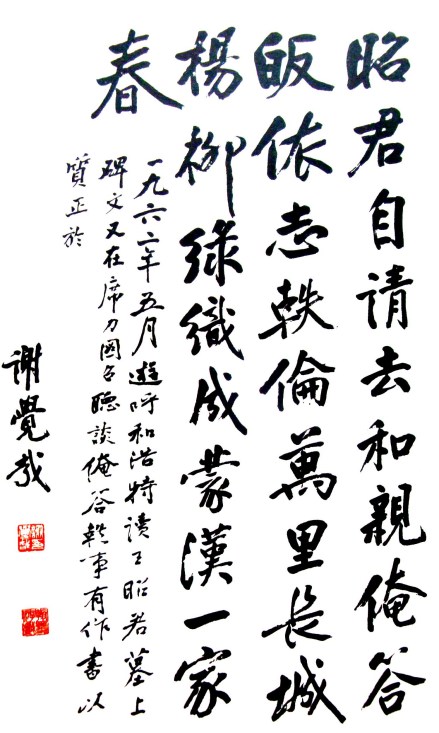 昭君自请去和親俺答
皈依志軼倫萬里長城
楊柳綠織成蒙漢一家
春
一九六二年五月遊呼和浩特读王昭君墓上
碑文又在席力图召聽談俺答軼事有作書以
質正於
謝覺哉